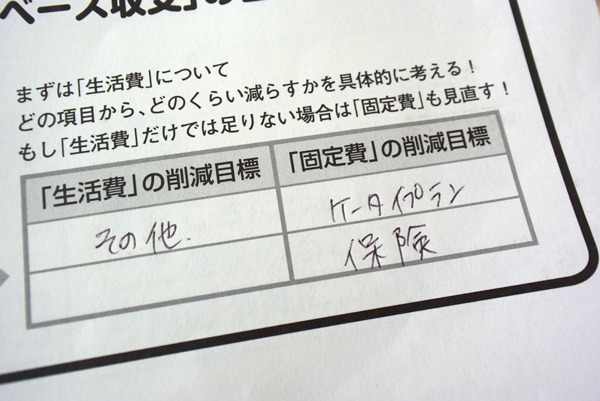 ベース収支」の
まずは「生活費」について
どの項目から、どのくらい減らすかを具体的に考える！
もし「生活費」だけでは足りない場合は「固定費」も見直す！
「生活費」の削減目標 「固定費」の削減目標
その他. ケータイプラン
保険